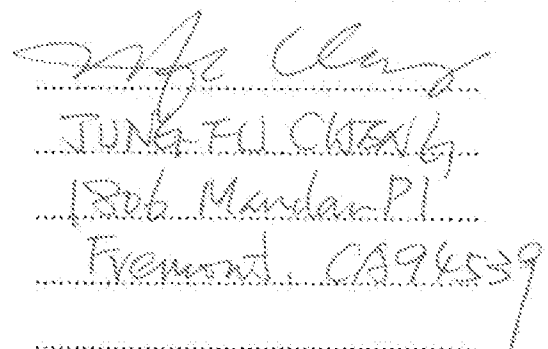 JUNG-FU CHENG
1806 Mandan Pl
Fremont, CA 94539